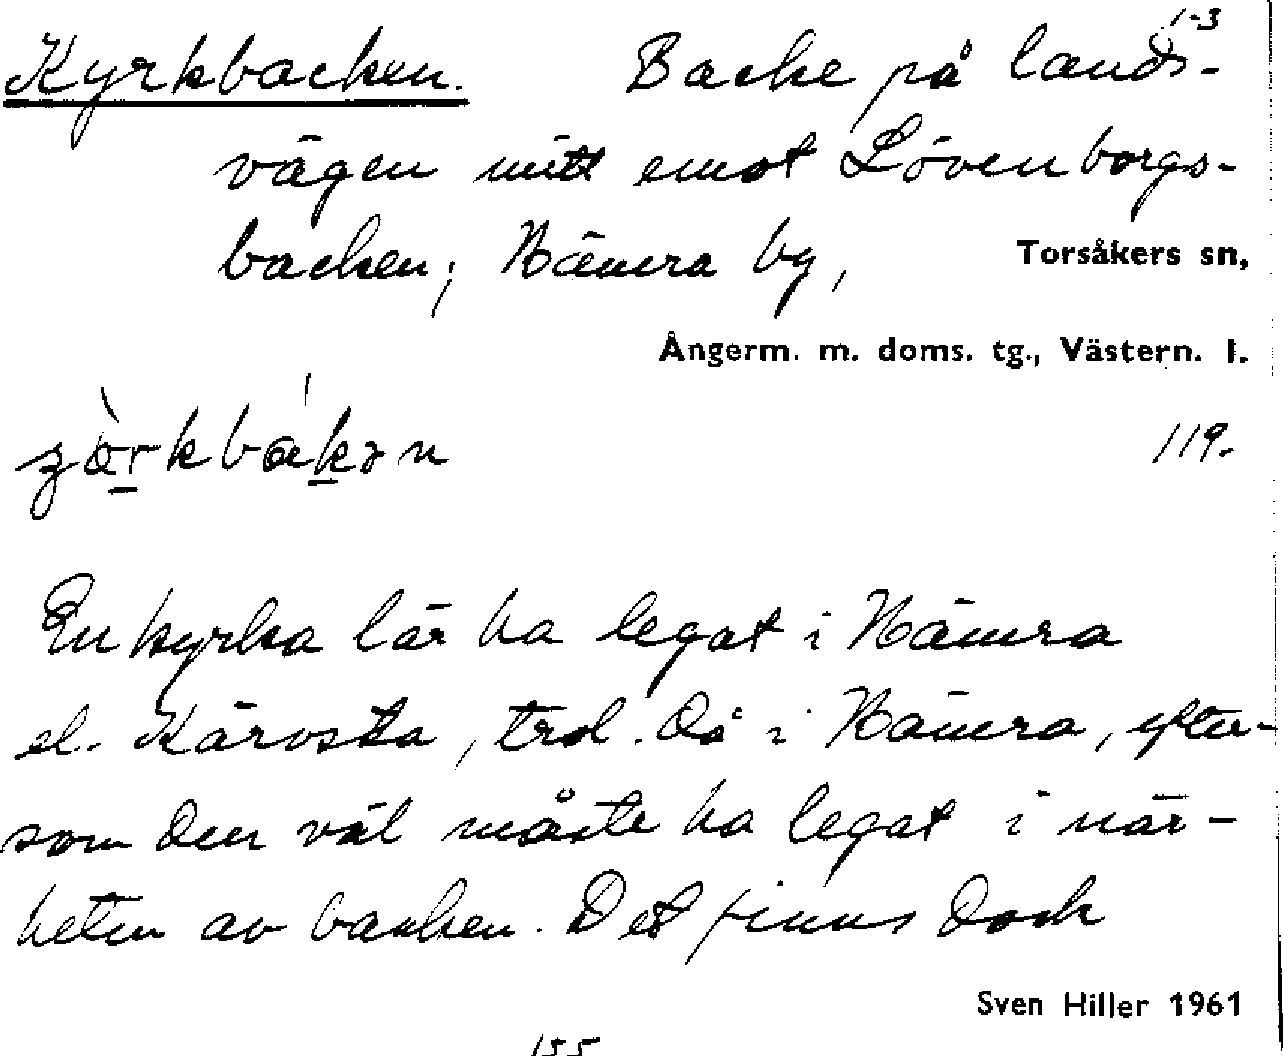 1-3
Kyrkbacken. Backe på lands-
vägen mitt emot Lövenborgs-
backen, Nämra by, Torsåkers sn,
Ångerm. m. doms. tg., Västern. l.
119.
En kyrka lär ha legat i Nämra
el. Kärvsta, trol. då i Nämra, efter-
som den väl måste ha legat i när-
heten av backen. Det finns dock
Sven Hiller 1961
155